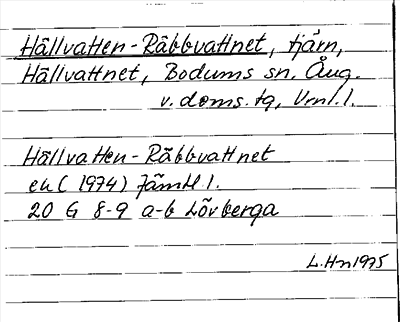 Hällvatten-Räbbvattnet, tjärn,
Hällvattnet, Bodums sn, Ång.
v. doms. tg, Vrnl. l.
Hällvatten-Räbbvattnet
ek (1974) Jämtl l.
20 G 8-9 a-b Lövberga
L. Hn 1975